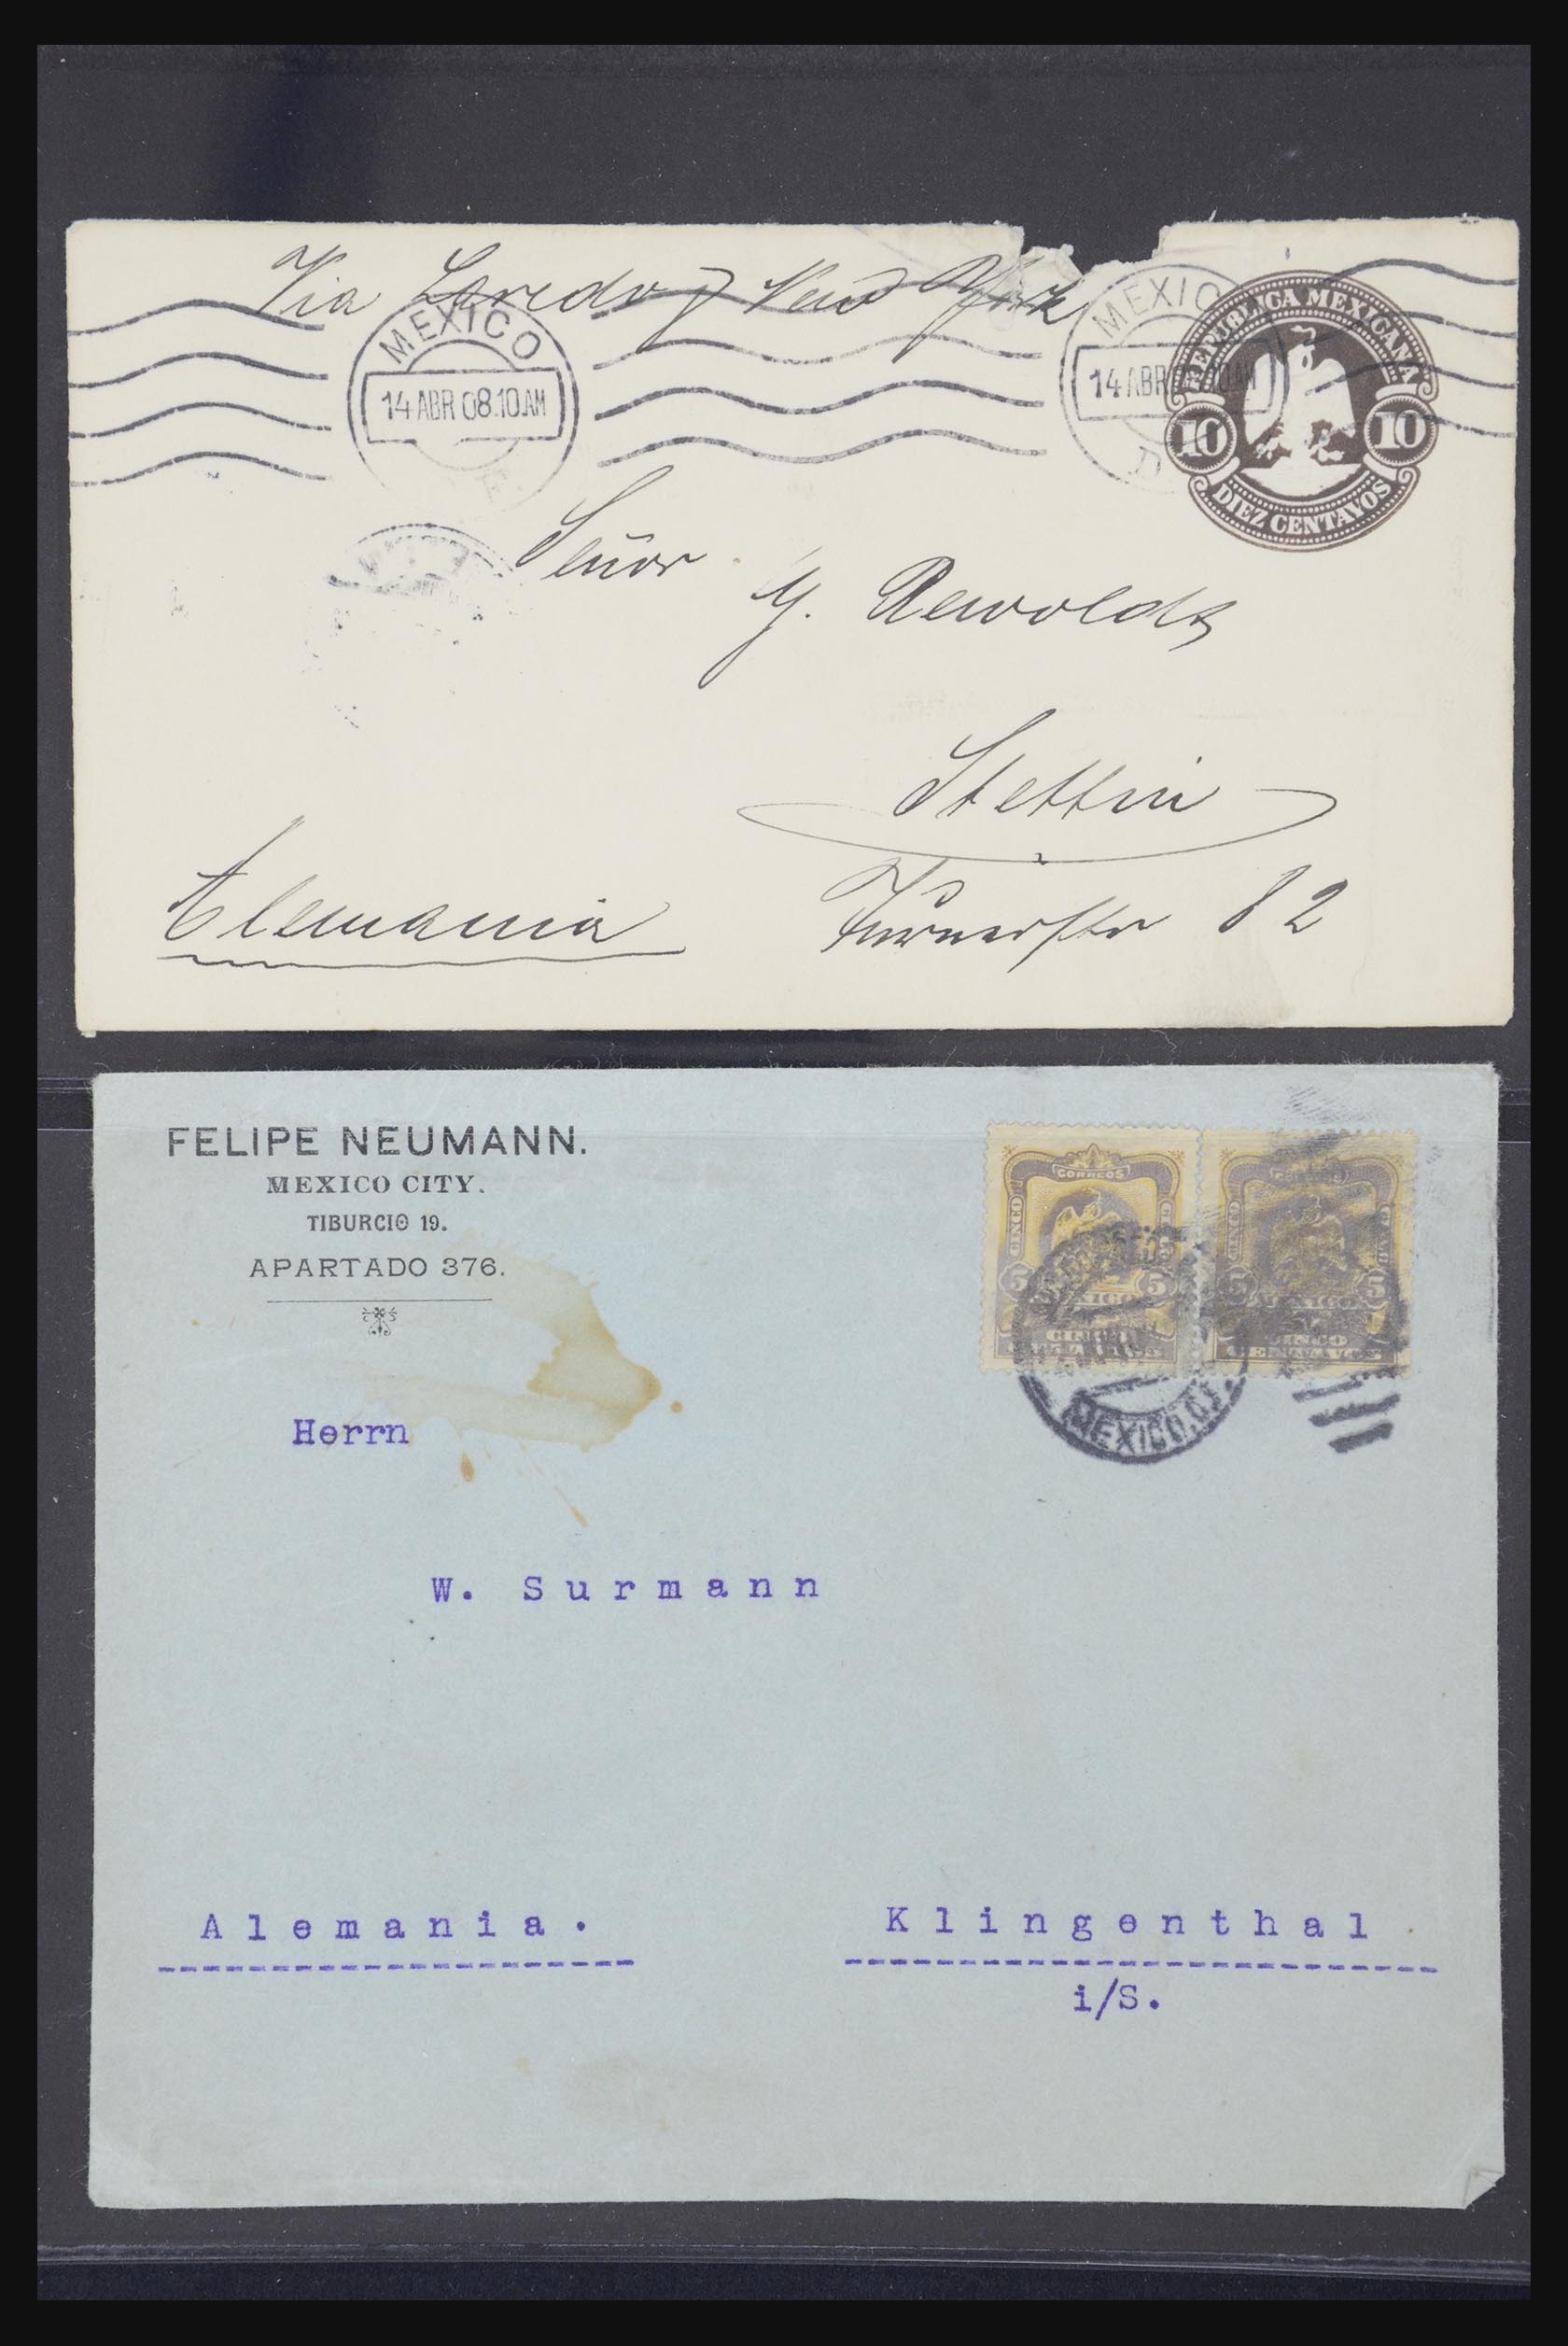 Via Laredo y New York
MEXICO
14 ABR 08.10 AM
F.
MEXICO
14 ABR
AM
D
REPUBLICA MEXICANA
10
10
DIEZ CENTAVOS
Señor
Stettin
Alemania
Turnerstr 82
FELIPE NEUMANN.
MEXICO CITY.
TIBURCIO 19.
APARTADO 376.
CORREOS
CINCO
5
5
MEXICO
CINCO
CENTAVOS
CINCO
5
5
MEXICO
CINCO
CENTAVOS
MEXICO,
Herrn
W. Surmann
Alemania.
Klingenthal
i/S.